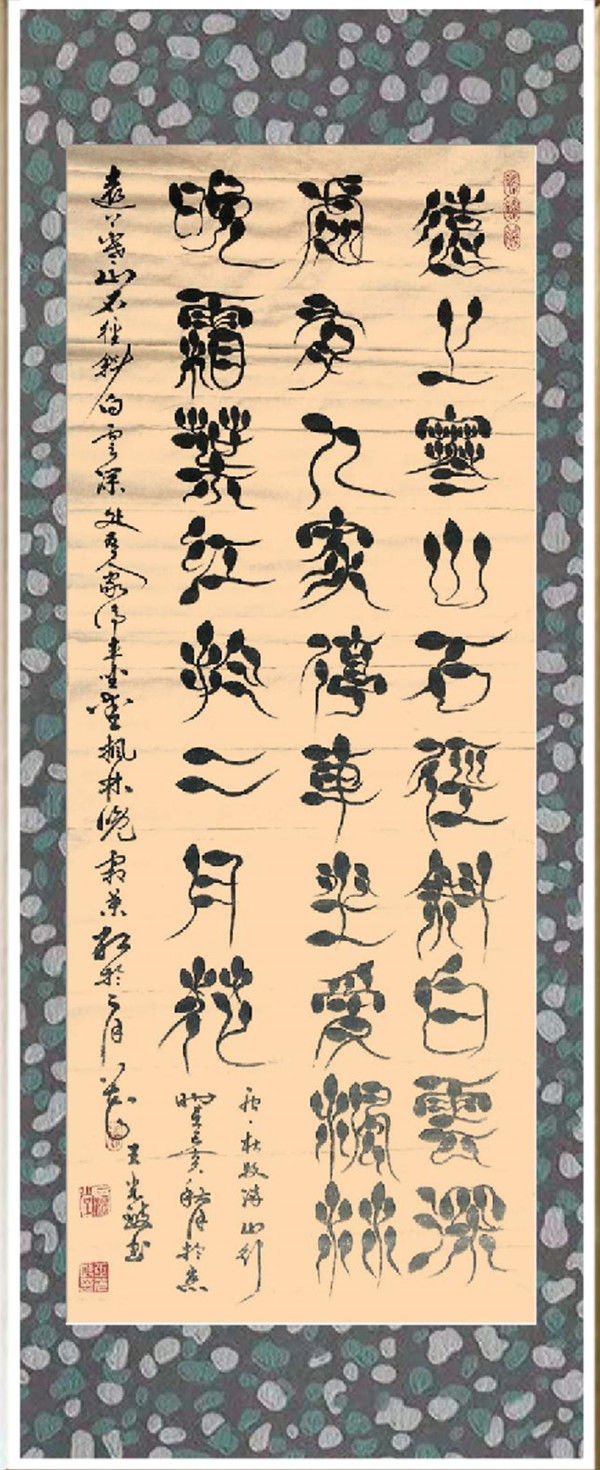 遠上寒山石徑斜白雲深
處有人家停車坐愛楓林
晚霜葉紅於二月花
唐·杜牧詩山行
己亥秋月於
遠上寒山石徑斜白雲深處有人家停車坐愛楓林晚霜葉紅於二月花
王光書